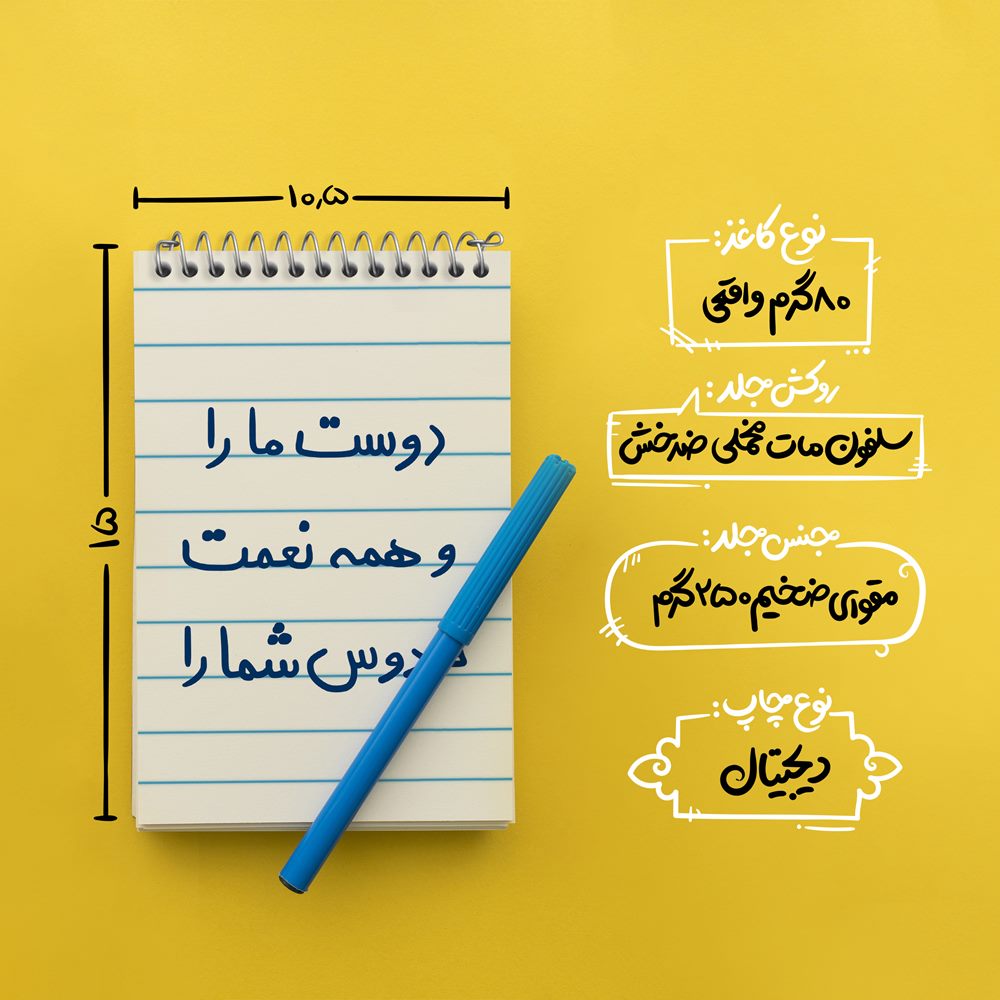 ۱۰٫۵
۱۵
دوست ما را
و همه نعمت
شما را
نوع کاغذ:
۸۰گرم واقعی
روکش جلد:
سلفون مات مخملی ضدخش
جنس جلد:
مقوای ضخیم ۲۵۰گرم
نوع چاپ:
دیجیتال